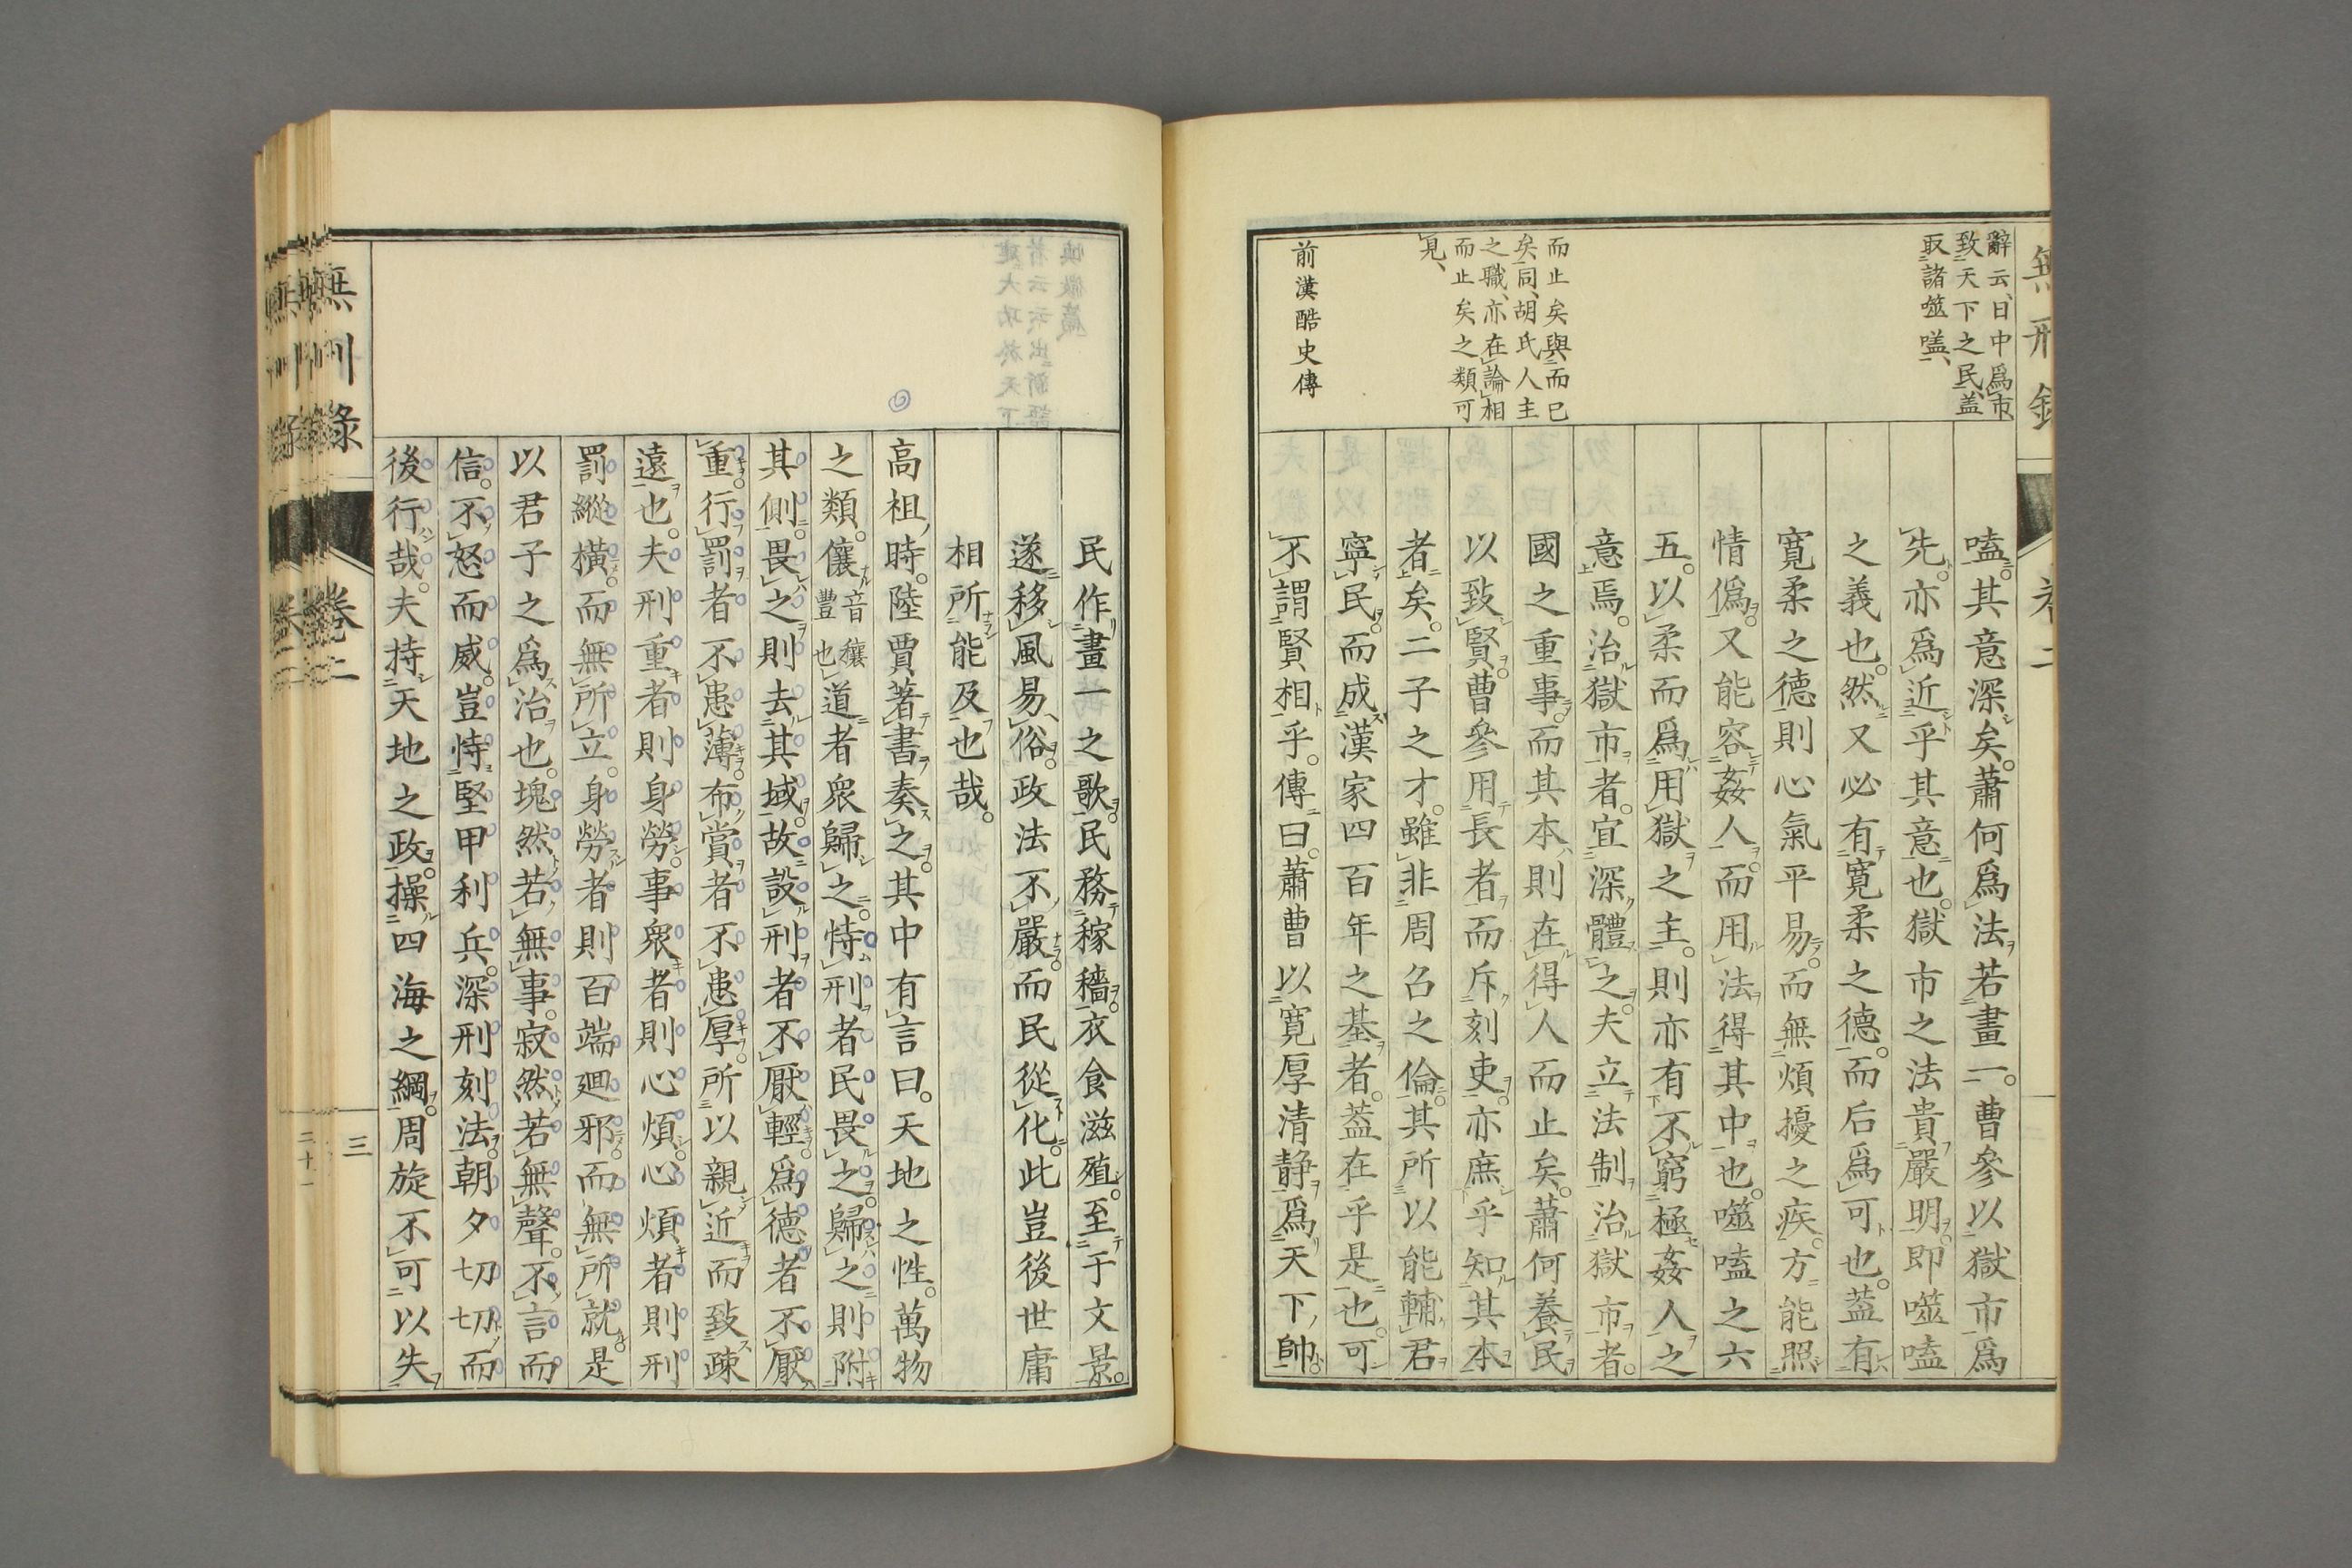 無刑錄
卷二
辭云、日中爲市、
致天下之民、蓋
取諸噬嗑、
而止矣與而已
矣同、胡氏人主
之職、亦在論相
而止矣之類、可
見、
前漢酷史傳
嗑。其意深矣。蕭何爲法若畫一。曹參以獄市爲
先。亦爲近乎其意也。獄市之法貴嚴明。即噬嗑
之義也。然又必有寬柔之德。而后爲可也。蓋有
寬柔之德則心氣平易。而無煩擾之疾。方能照
情僞。又能容姦人。而用法得其中也。噬嗑之六
五。以柔而爲用獄之主。則亦有不窮極姦人之
意焉。治獄市者。宜深體之。夫立法制治獄市者。
國之重事。而其本則在得人而止矣。蕭何養民
以致賢。曹參用長者而斥刻吏。亦庶乎知其本
者矣。二子之才。雖非周召之倫。其所以能輔君
寧民。而成漢家四百年之基者。蓋在乎是也。可
不謂賢相乎。傳曰。蕭曹以寛厚清靜爲天下帥。
民作畫一之歌。民務稼穡。衣食滋殖。至于文景。
遂移風易俗。政法不嚴。而民從化。此豈後世庸
相所能及也哉。
高祖時。陸賈著書奏之。其中有言曰。天地之性。萬物
之類。儴音穰豐也道者衆歸之。恃刑者民畏之。歸之則附
其側。畏之則去其域。故設刑者不厭輕。爲德者不厭
重。行罰者不患薄。布賞者不患厚。所以親近而致疎
遠也。夫刑重者則身勞。事衆者則心煩。心煩者則刑
罰縱橫。而無所立。身勞者則百端廻邪。而無所就。是
以君子之爲治也。塊然若無事。寂然若無聲。不言而
信。不怒而威。豈恃堅甲利兵。深刑刻法。朝夕切切而
後行哉。夫持天地之政。操四海之綱。周旋不可以失
無刑錄
卷二
三
二十一